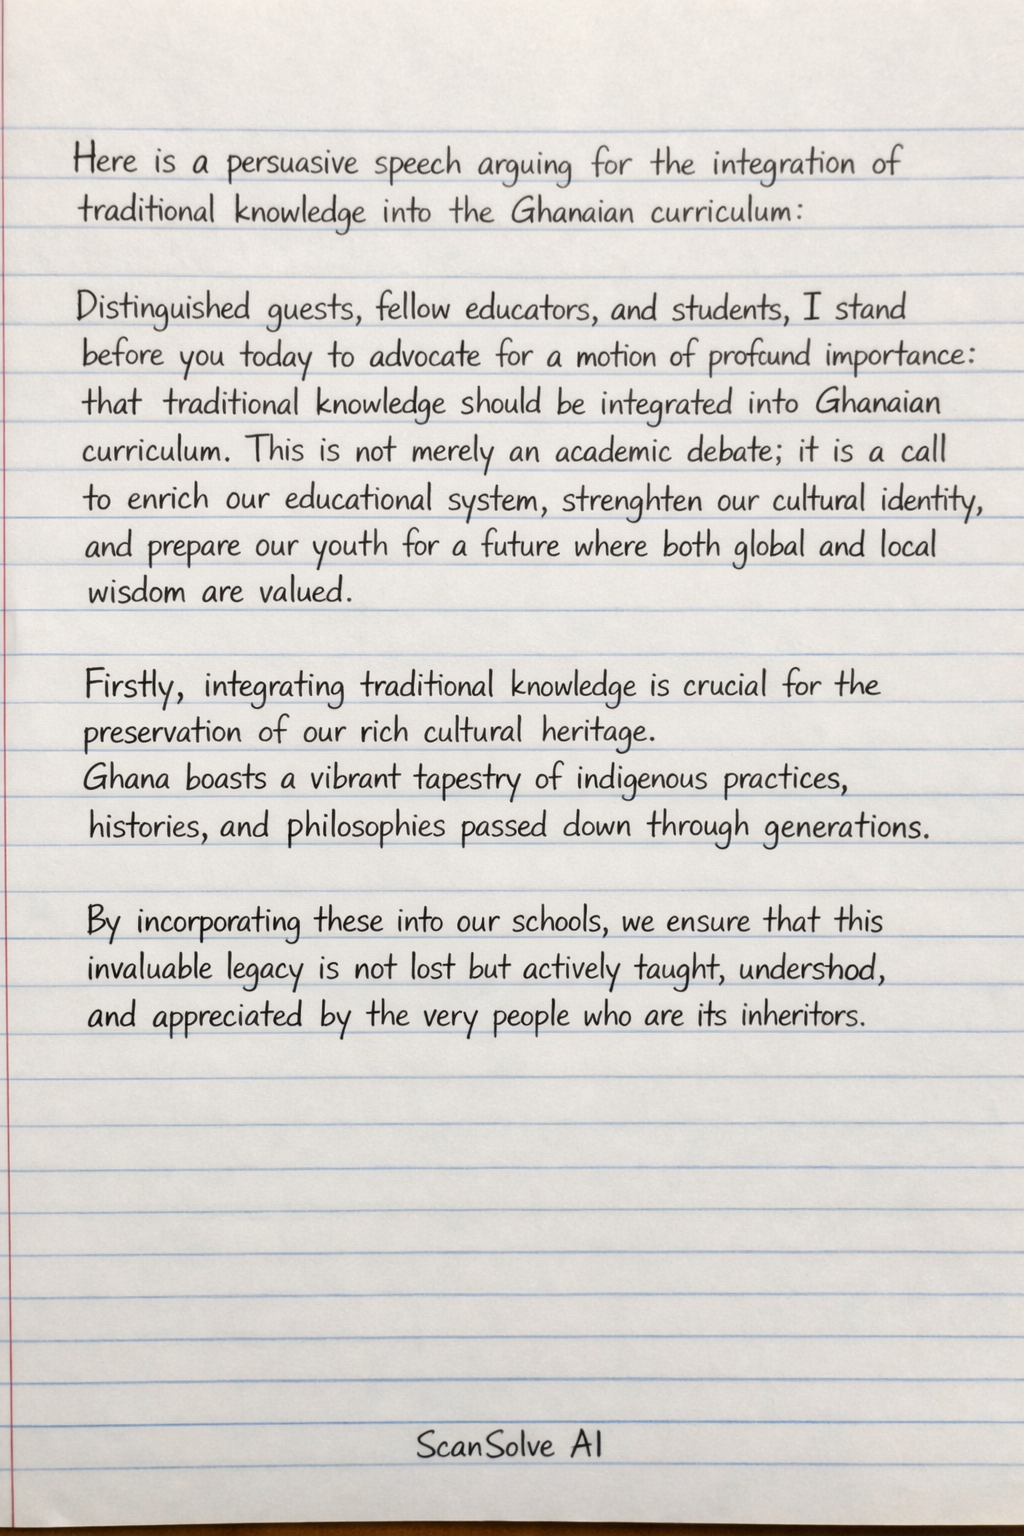 Here is a persuasive speech arguing for the integration of
traditional knowledge into the Ghanaian curriculum:
Distinguished guests, fellow educators, and students, I stand
before you today to advocate for a motion of profound importance:
that traditional knowledge should be integrated into Ghanaian
curriculum. This is not merely an academic debate; it is a call
to enrich our educational system, strenghten our cultural identity,
and prepare our youth for a future where both global and local
wisdom are valued.
Firstly, integrating traditional knowledge is crucial for the
preservation of our rich cultural heritage.
Ghana boasts a vibrant tapestry of indigenous practices,
histories, and philosophies passed down through generations.
By incorporating these into our schools, we ensure that this
invaluable legacy is not lost but actively taught, undershod,
and appreciated by the very people who are its inheritors.
ScanSolve AI